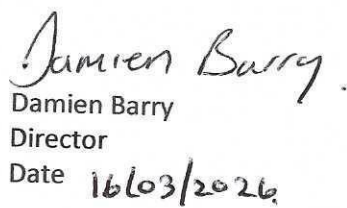 Damien Barry.
Damien Barry
Director
Date 16/03/2026